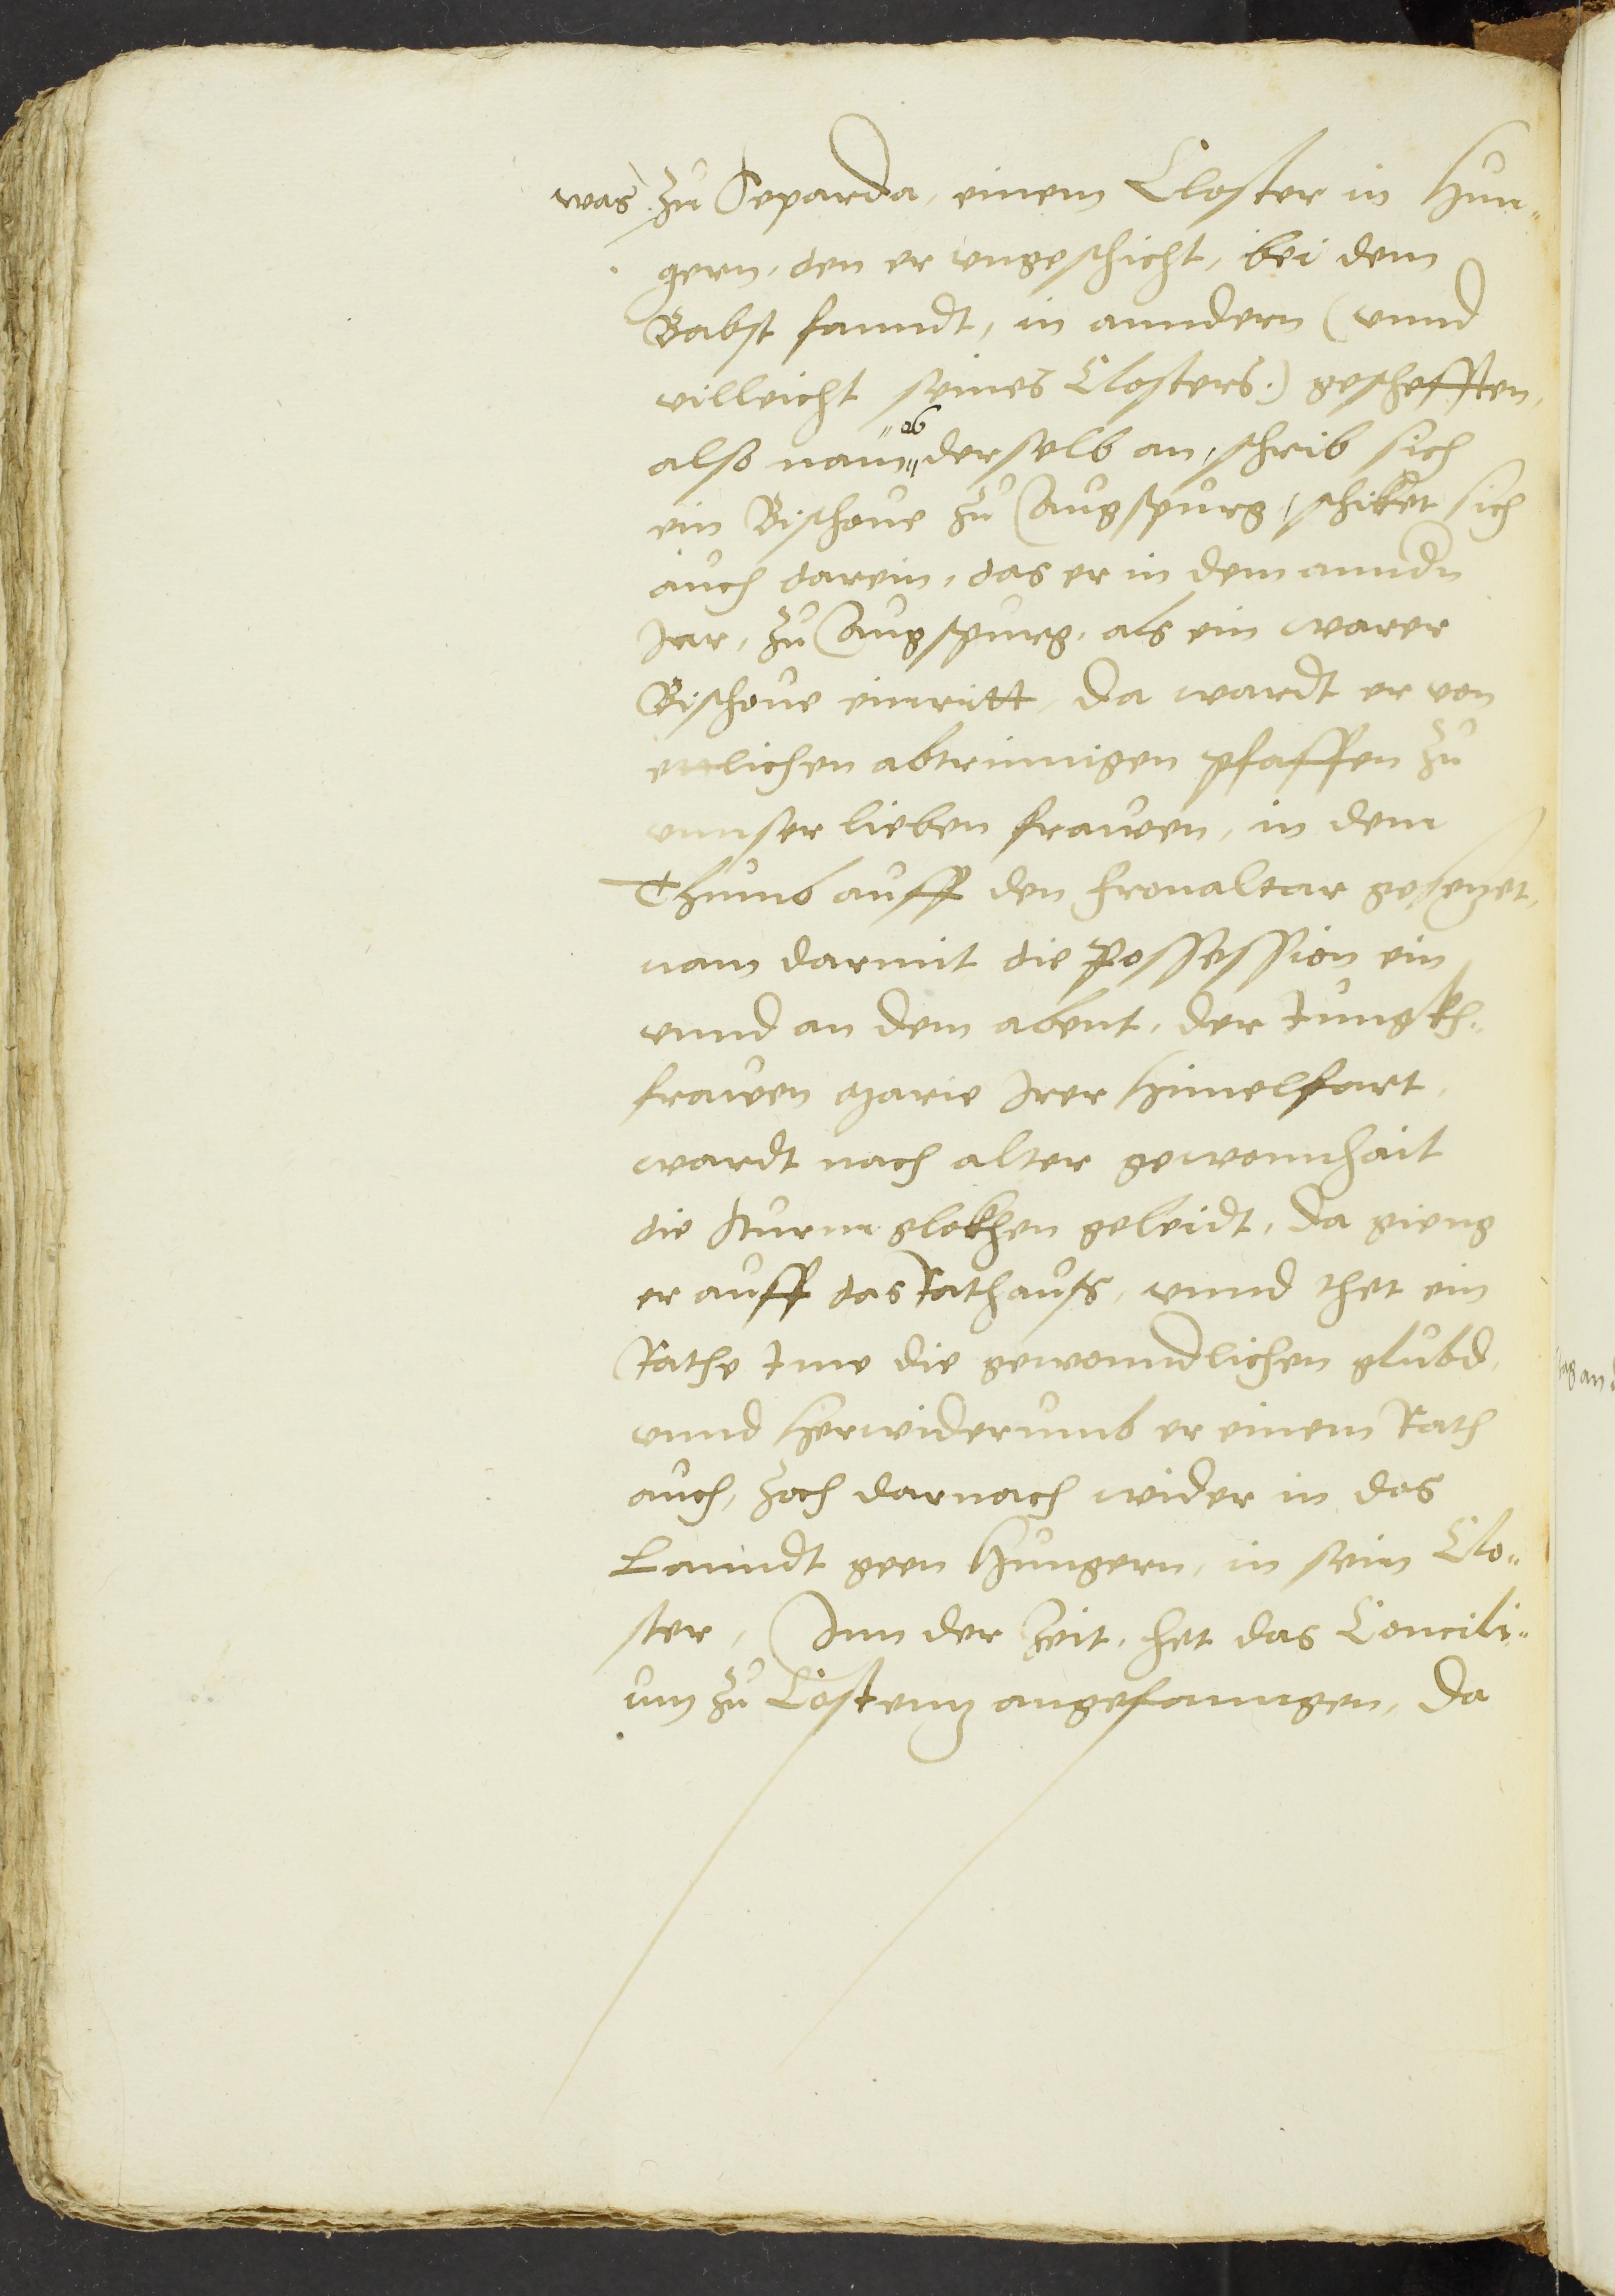 was zu Separda, einem Closter in Hun„
gern, den er ungeschicht, bei dem
Babst fanndt, in anndern (vnnd
villeicht seines Closters.) geschefften,
also nam„ es derselb an, schrib sich
ein Bischoue zu Augspurg, schiket sich
auch darein, das er in dem anndn
Jar, zu Augspurg, als ein warer
Bischoue einritt, da wardt er von
ettlichen abtrinnigen pfaffen zu
vnnser lieben frawen, in dem
Thumb auff den fronaltar gesetzet,
nam darmit die Possession ein
vnnd an dem abent, der Jungkh„
frawen Marie Irer himelfart,
wardt nach alter gewonnhait
die sturm glokhen geleidt, da gieng
er auff das Rathauss, vnnd thet ein
Rathe Ime die gewonndlichen glubd,
vnnd herwiderumb er einem Rath
auch, zoch darnach wider in das
Lanndt geen Hungern, in sein Clo„
ster, Inn der Zeit, het das Concili„
um zu Costentz angefanngen, da